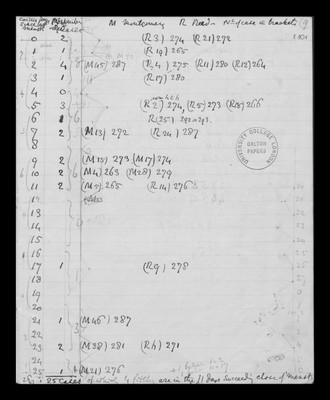 M Montgomery R Read - No of case in brackets
0 2 (R3) 274 (R21) 272
1 1 (R19) 265
2 4 (M45) 287 (R4) 275 (R11) 280 (R12) 264
3 1 (R17) 280
4 0
5 3 (R2) 274, (R5) 273 (R18) 266
6 (R25)
7 2 (M13) 272 (R24) 287
8
9 2 (M15) 273 (M17) 274
10 2 (M4) 263 (M28) 279
11 2 (M7) 265 (R14) 276
12
13
14
15
16
17 1 (R9) 278
18
19
20
21 1 (M46) 287
22
23 2 (M38) 281 (Rh) 271
24
25 1 (M21) 276
25 Cases of which are in the 11 days succeeding close of menst
UNIVERSITY COLLEGE LONDON
GALTON PAPERS